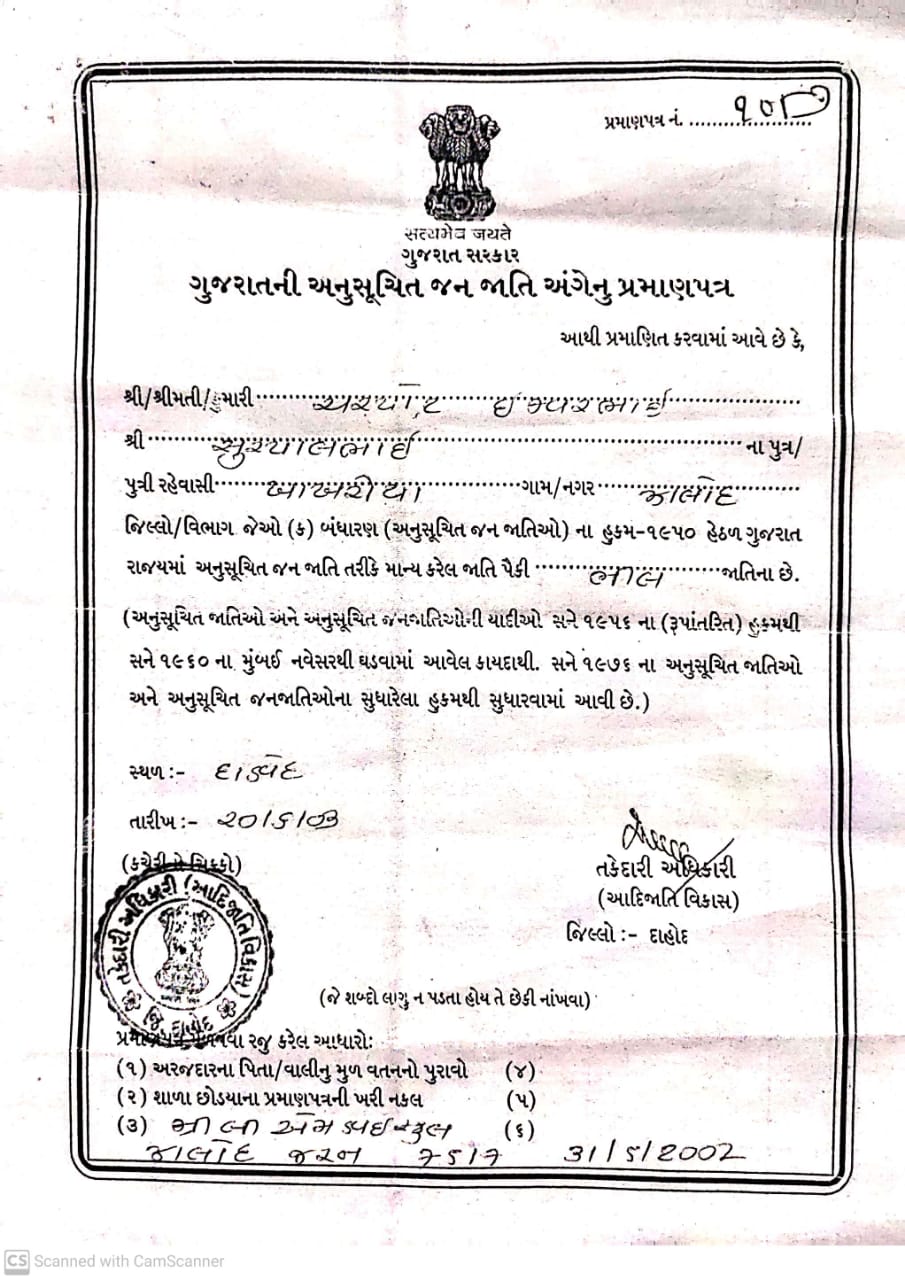 પ્રમાણપત્ર નં. ....................
सत्यमेव जयते
ગુજરાત સરકાર
ગુજરાતની અનુસૂચિત જન જાતિ અંગેનુ પ્રમાણપત્ર
આથી પ્રમાણિત કરવામાં આવે છે કે,
શ્રી/શ્રીમતી/કુમારી ઈશ્વરભાઈ
શ્રી સુરપાલભાઈ ના પુત્ર/
પુત્રી રહેવાસી ખાખરીયા ગામ/નગર ઝાલોદ
જિલ્લો/વિભાગ જેઓ (ક) બંધારણ (અનુસૂચિત જન જાતિઓ) ના હુકમ-૧૯૫૦ હેઠળ ગુજરાત
રાજયમાં અનુસૂચિત જન જાતિ તરીકે માન્ય કરેલ જાતિ પૈકી ભીલ જાતિના છે.
(અનુસૂચિત જાતિઓ અને અનુસૂચિત જનજાતિઓની યાદીઓ સને ૧૯૫૬ ના (રૂપાંતરિત) હુકમથી
સને ૧૯૬૦ ના મુંબઈ નવેસરથી ઘડવામાં આવેલ કાયદાથી. સને ૧૯૭૬ ના અનુસૂચિત જાતિઓ
અને અનુસૂચિત જનજાતિઓના સુધારેલા હુકમથી સુધારવામાં આવી છે.)
સ્થળ :- દાહોદ
તારીખ :- ૨૦/૬/૦૩
(કચેરીનો સિક્કો)
તકેદારી અધિકારી
(આદિજાતિ વિકાસ)
જિલ્લો :- દાહોદ
તકેદારી અધિકારી (આદિજાતિ વિકાસ)
જિ. દાહોદ
(જે શબ્દો લાગુ ન પડતા હોય તે છેકી નાંખવા)
પ્રમાણપત્ર મેળવવા રજુ કરેલ આધારો:
(૧) અરજદારના પિતા/વાલીનુ મુળ વતનનો પુરાવો (૪)
(૨) શાળા છોડયાના પ્રમાણપત્રની ખરી નકલ (૫)
(૩) બી એમ હાઈસ્કુલ (૬)
ઝાલોદ જ૨ન ૭૬૧૭ ૩૧/૬/2002
CS Scanned with CamScanner